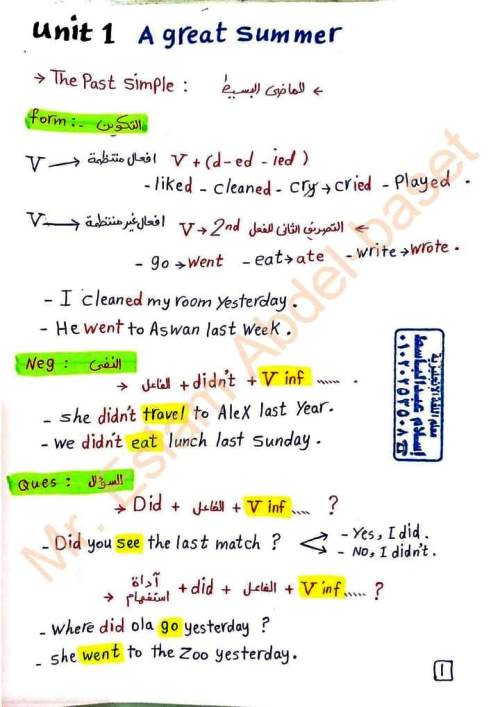 Unit 1 A great summer
→ The Past simple : الماضى البسيط ←
form :- التكوين
V → افعال منتظمة V + (d - ed - ied)
- liked - cleaned - cry → cried - Played .
V → افعال غير منتظمة V → 2nd التصريف الثانى للفعل ←
- go → went - eat → ate - write → wrote .
- I cleaned my room yesterday .
- He went to Aswan last week .
Neg : النفى
→ الفاعل + didn't + V inf ...... .
- she didn't travel to Alex last Year.
- we didn't eat lunch last sunday .
Ques : السؤال
→ Did + الفاعل + V inf .... ?
- Did you see the last match ? - Yes, I did .
- No, I didn't .
→ أداة استفهام + did + الفاعل + V inf ..... ?
- where did ola go yesterday ?
- she went to the Zoo yesterday .
1
معلم اللغة الانجليزية
إسلام عبدالباسط
٠١٠٢٠٢٥٣٥٠٨
Mr. Eslam Abdel-baset